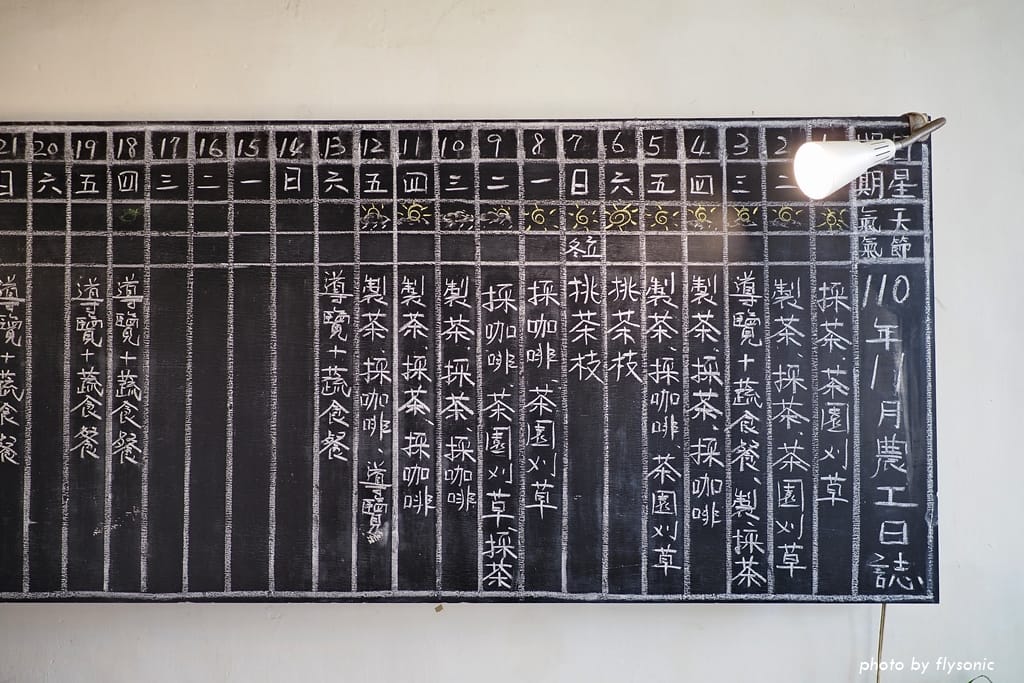 110年11月農工日誌
日 星期
天氣
節氣
1
採茶、茶園刈草
2 二
製茶、採茶、茶園刈草
3 三
導覽+蔬食餐、製、採茶
4 四
製茶、採茶、採咖啡
5 五
製茶、採咖啡、茶園刈草
6 六
挑茶枝
7 日
立冬
挑茶枝
8 一
採咖啡、茶園刈草
9 二
採咖啡、茶園刈草、採茶
10 三
製茶、採茶、採咖啡
11 四
製茶、採茶、採咖啡
12 五
製茶、採咖啡、導覽
13 六
導覽+蔬食餐
14 日
15 一
16 二
17 三
18 四
導覽+蔬食餐
19 五
導覽+蔬食餐
20 六
21 日
導覽+蔬食餐
photo by flysonic